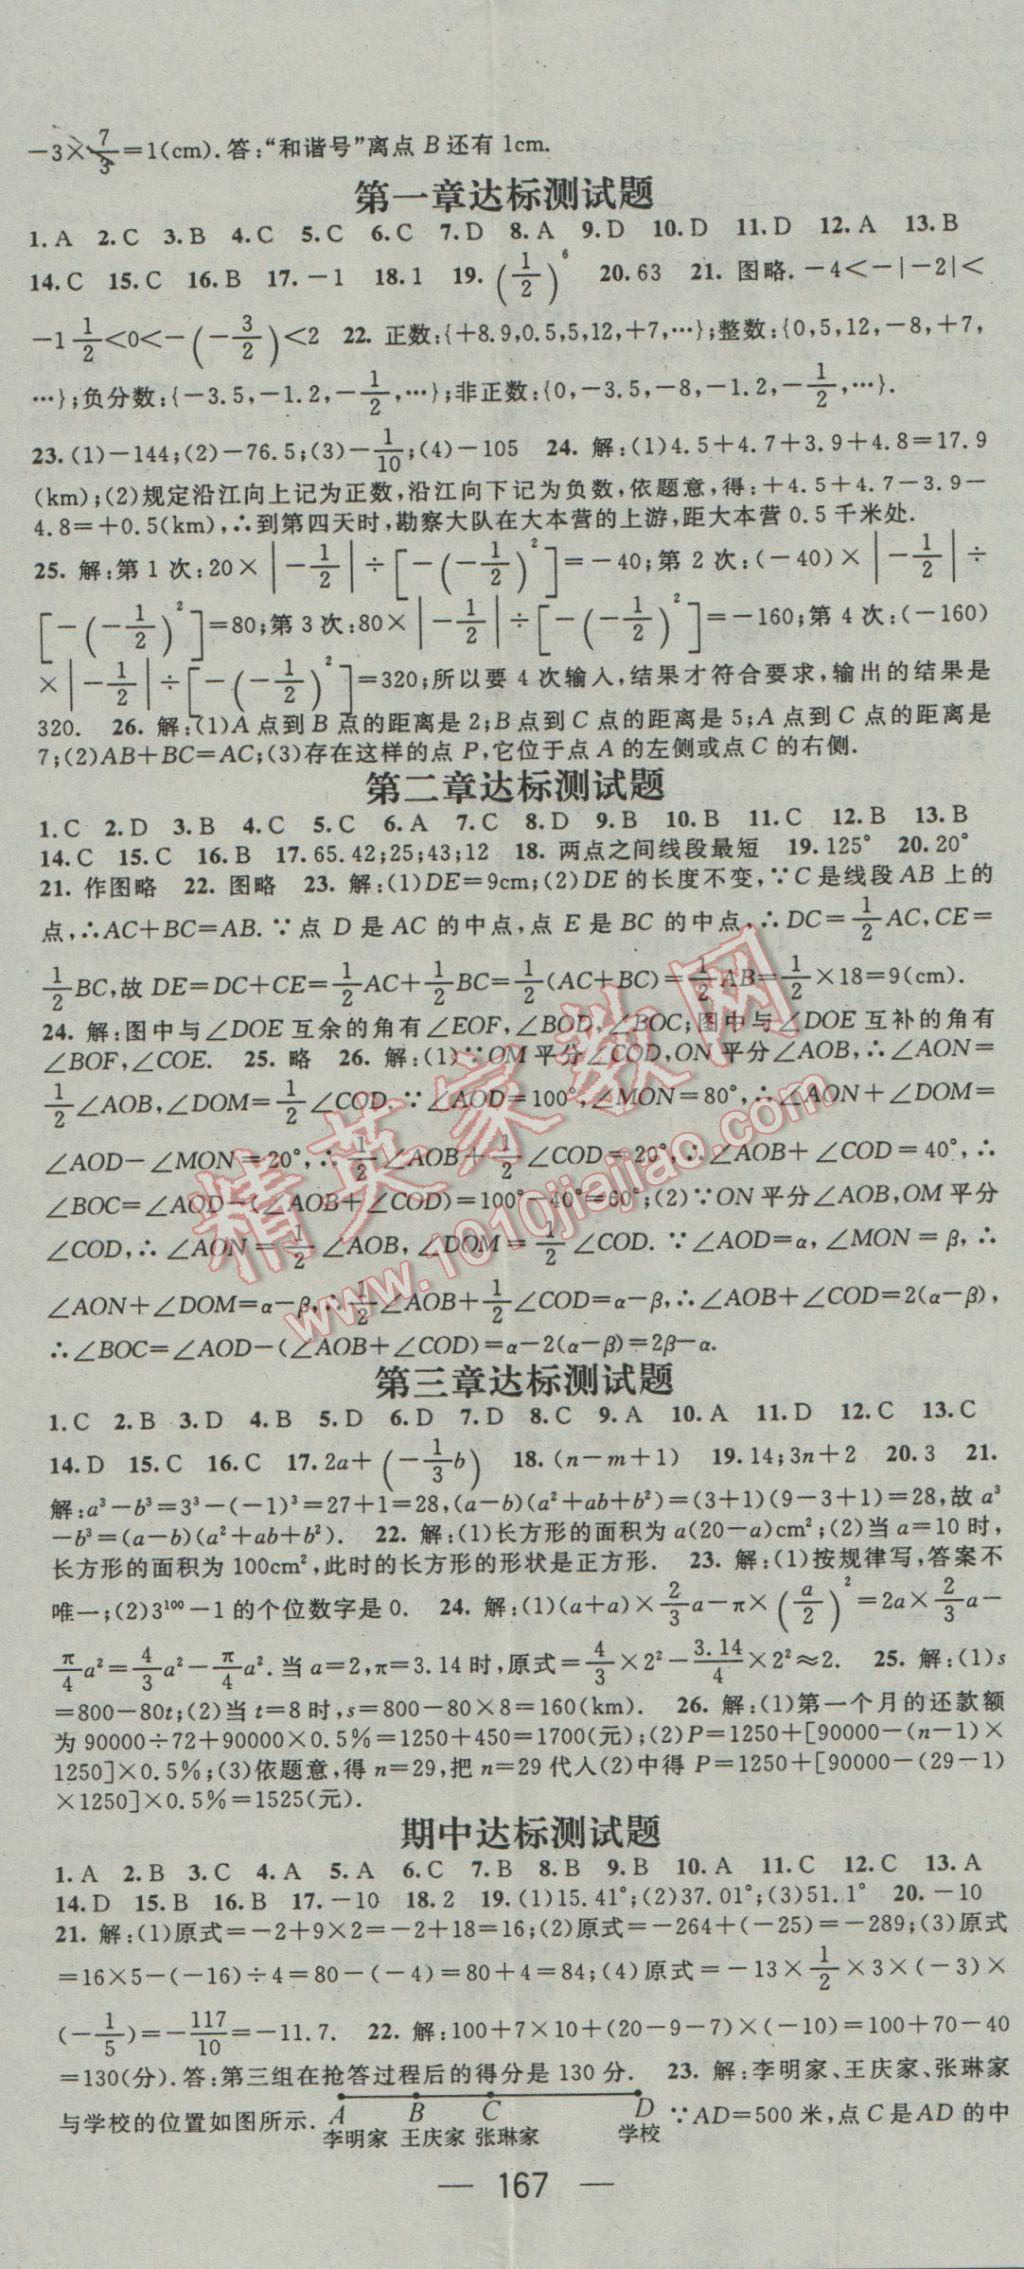 -3×7/3=1(cm).答:“和谐号”离点 B 还有 1cm.
第一章达标测试题
1. A 2. C 3. B 4. C 5. C 6. C 7. D 8. A 9. D 10. D 11. D 12. A 13. B
14. C 15. C 16. B 17. -1 18. 1 19. (1/2)^6 20. 63 21. 图略. -4<-|-2|<
-1 1/2<0<-(-3/2)<2 22. 正数:{+8.9,0.5,5,12,+7,…};整数:{0,5,12,-8,+7,
…};负分数:{-3.5,-1.2,-1/2,…};非正数:{0,-3.5,-8,-1.2,-1/2,…}.
23. (1)-144;(2)-76.5;(3)-1/10;(4)-105 24. 解:(1)4.5+4.7+3.9+4.8=17.9
(km);(2)规定沿江向上记为正数,沿江向下记为负数,依题意,得:+4.5+4.7-3.9-
4.8=+0.5(km),∴到第四天时,勘察大队在大本营的上游,距大本营 0.5 千米处.
25. 解:第 1 次:20×|-1/2|÷[-(-1/2)²]=-40;第 2 次:(-40)×|-1/2|÷
[-(-1/2)²]=80;第 3 次:80×|-1/2|÷[-(-1/2)²]=-160;第 4 次:(-160)
×|-1/2|÷[-(-1/2)²]=320;所以要 4 次输入,结果才符合要求,输出的结果是
320. 26. 解:(1)A 点到 B 点的距离是 2;B 点到 C 点的距离是 5;A 点到 C 点的距离是
7;(2)AB+BC=AC;(3)存在这样的点 P,它位于点 A 的左侧或点 C 的右侧.
第二章达标测试题
1. C 2. D 3. B 4. C 5. C 6. A 7. C 8. D 9. B 10. B 11. C 12. B 13. B
14. C 15. C 16. B 17. 65.42;25;43;12 18. 两点之间线段最短 19. 125° 20. 20°
21. 作图略 22. 图略 23. 解:(1)DE=9cm;(2)DE 的长度不变,∵C 是线段 AB 上的
点,∴AC+BC=AB.∵点 D 是 AC 的中点,点 E 是 BC 的中点,∴DC=1/2AC,CE=
1/2BC,故 DE=DC+CE=1/2AC+1/2BC=1/2(AC+BC)=1/2AB=1/2×18=9(cm).
24. 解:图中与∠DOE 互余的角有∠EOF,∠BOD,∠BOC;图中与∠DOE 互补的角有
∠BOF,∠COE. 25. 略 26. 解:(1)∵OM 平分∠COD,ON 平分∠AOB,∴∠AON=
1/2∠AOB,∠DOM=1/2∠COD.∵∠AOD=100°,∠MON=80°,∴∠AON+∠DOM=
∠AOD-∠MON=20°,∴1/2∠AOB+1/2∠COD=20°,∴∠AOB+∠COD=40°,∴
∠BOC=∠AOD-(∠AOB+∠COD)=100°-40°=60°;(2)∵ON 平分∠AOB,OM 平分
∠COD,∴∠AON=1/2∠AOB,∠DOM=1/2∠COD.∵∠AOD=α,∠MON=β,∴
∠AON+∠DOM=α-β,∴1/2∠AOB+1/2∠COD=α-β,∴∠AOB+∠COD=2(α-β),
∴∠BOC=∠AOD-(∠AOB+∠COD)=α-2(α-β)=2β-α.
第三章达标测试题
1. C 2. B 3. D 4. B 5. D 6. D 7. D 8. C 9. A 10. A 11. D 12. C 13. C
14. D 15. C 16. C 17. 2a+(-1/3b) 18. (n-m+1) 19. 14;3n+2 20. 3 21.
解:a³-b³=3³-(-1)³=27+1=28,(a-b)(a²+ab+b²)=(3+1)(9-3+1)=28,故 a³
-b³=(a-b)(a²+ab+b²). 22. 解:(1)长方形的面积为 a(20-a)cm²;(2)当 a=10 时,
长方形的面积为 100cm²,此时的长方形的形状是正方形. 23. 解:(1)按规律写,答案不
唯一;(2)3¹⁰⁰-1 的个位数字是 0. 24. 解:(1)(a+a)×2/3a-π×(a/2)²=2a×2/3a-
π/4a²=4/3a²-π/4a².当 a=2,π=3.14 时,原式=4/3×2²-3.14/4×2²≈2. 25. 解:(1)s
=800-80t;(2)当 t=8 时,s=800-80×8=160(km). 26. 解:(1)第一个月的还款额
为 90000÷72+90000×0.5%=1250+450=1700(元);(2)P=1250+[90000-(n-1)×
1250]×0.5%;(3)依题意,得 n=29,把 n=29 代人(2)中得 P=1250+[90000-(29-1)
×1250]×0.5%=1525(元).
期中达标测试题
1. A 2. B 3. C 4. A 5. A 6. C 7. B 8. B 9. B 10. A 11. C 12. C 13. A
14. D 15. B 16. B 17. -10 18. 2 19. (1)15.41°;(2)37.01°;(3)51.1° 20. -10
21. 解:(1)原式=-2+9×2=-2+18=16;(2)原式=-264+(-25)=-289;(3)原式
=16×5-(-16)÷4=80-(-4)=80+4=84;(4)原式=-13×1/2×3×(-3)×
(-1/5)=-117/10=-11.7. 22. 解:100+7×10+(20-9-7)×(-10)=100+70-40
=130(分).答:第三组在抢答过程后的得分是 130 分. 23. 解:李明家、王庆家、张琳家
与学校的位置如图所示. A B C D ∵AD=500 米,点 C 是 AD 的中
李明家 王庆家 张琳家 学校
— 167 —
精英家教网
www.1010jiajiao.com